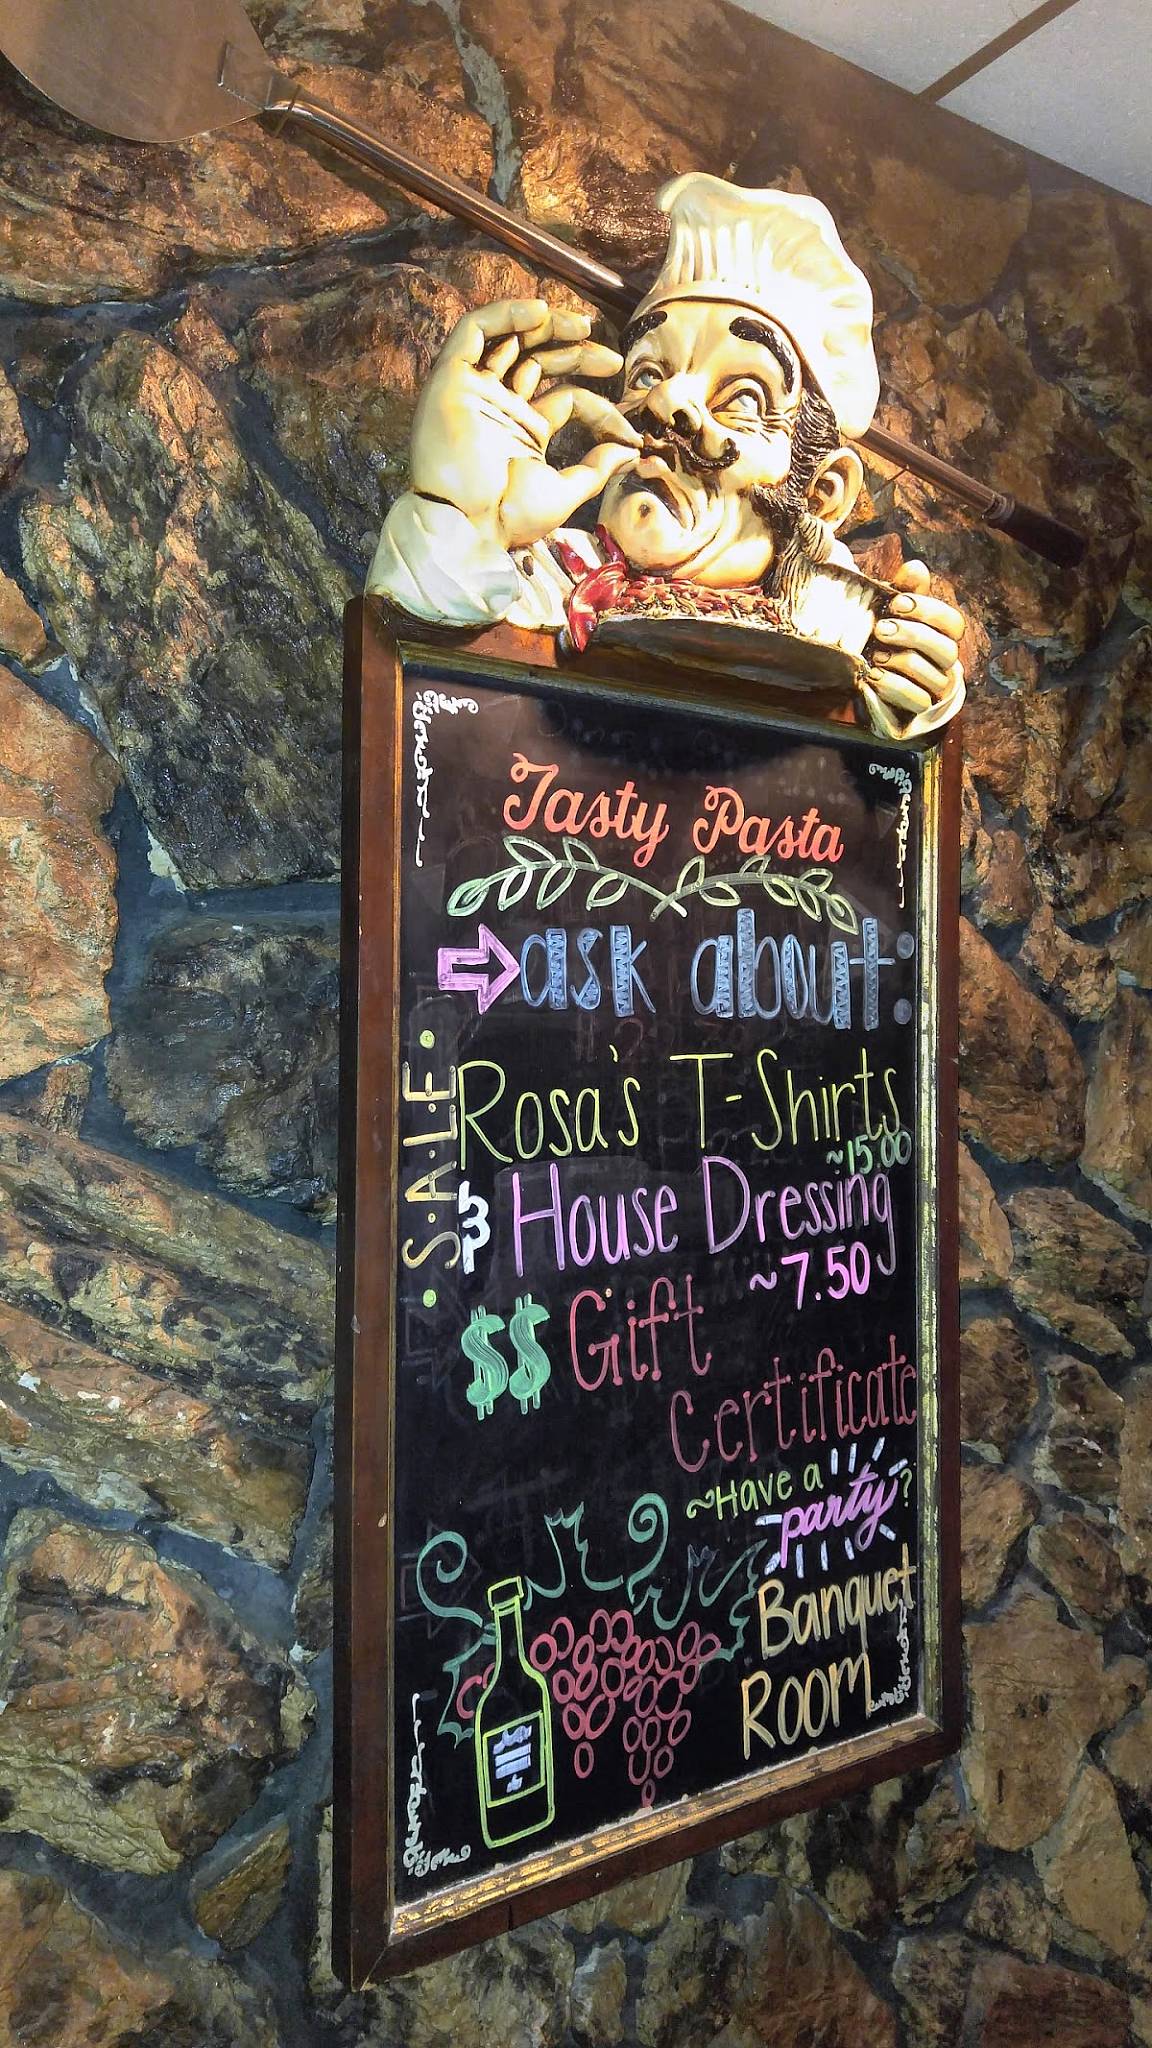 Tasty Pasta
ask about:
·S·A·L·E·
Rosa's T-Shirts
~15.00
& House Dressing
~7.50
$$ Gift
Certificate
~Have a
party?
Banquet
Room